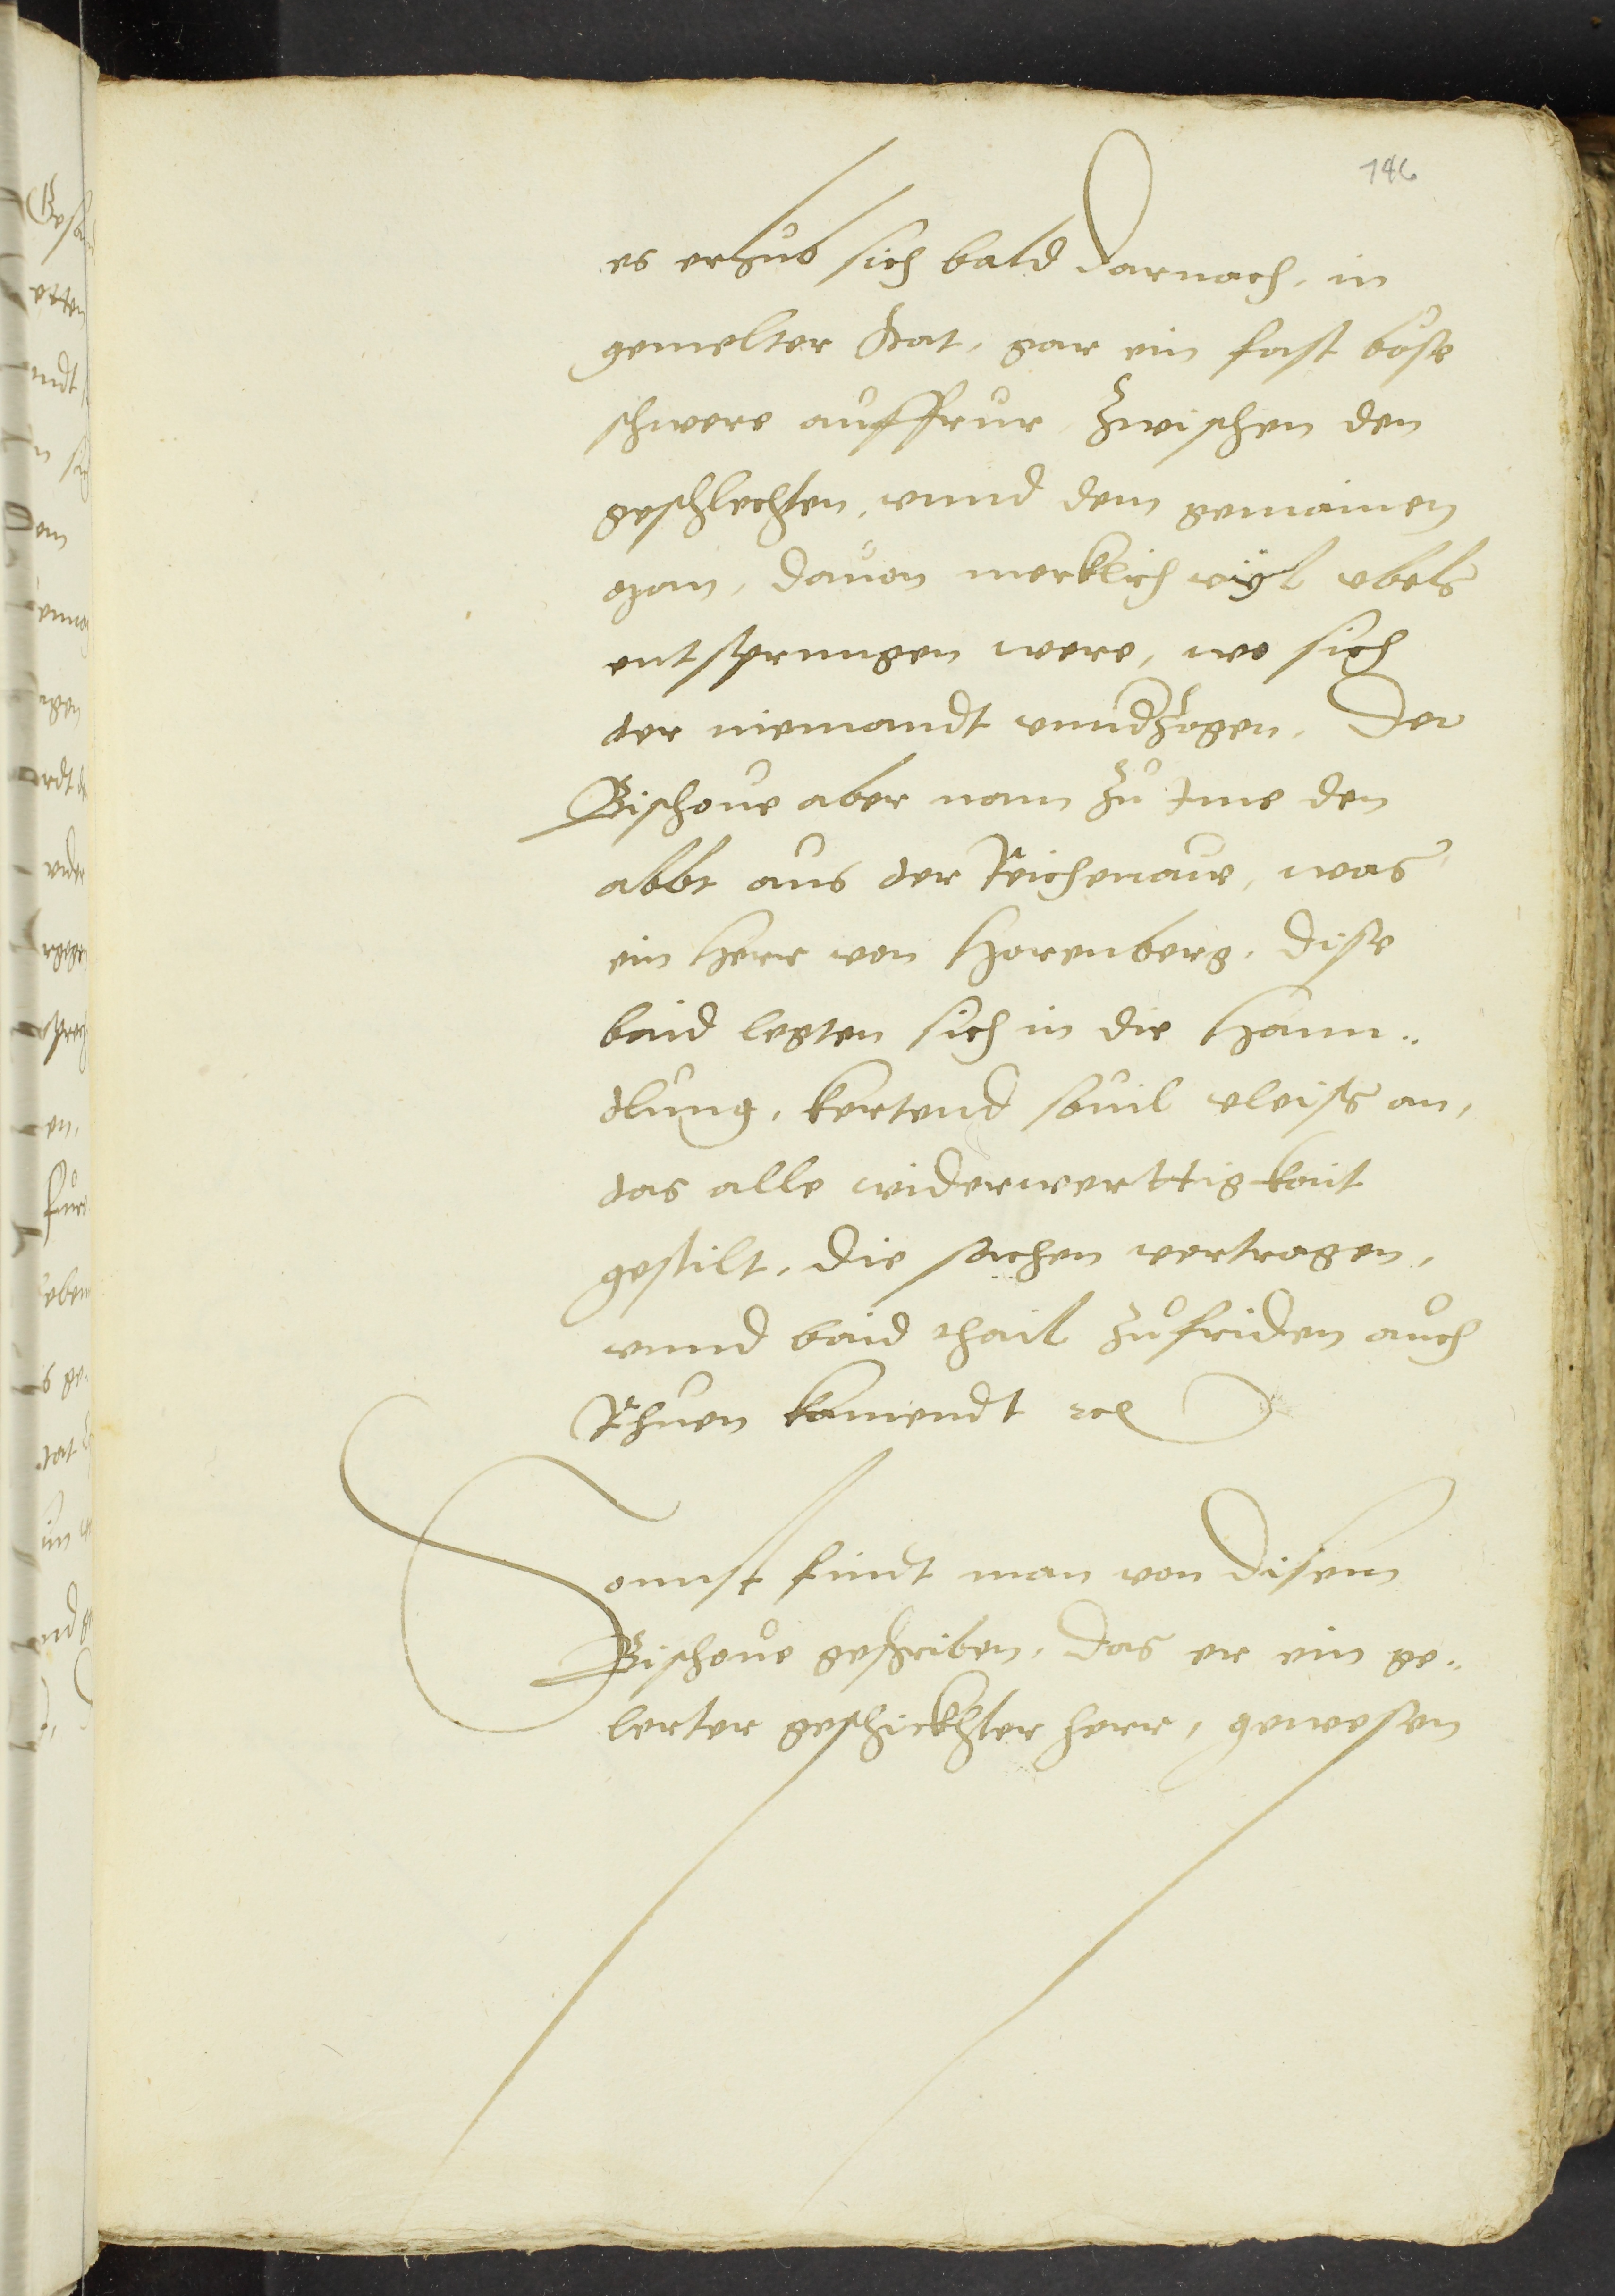 186
es erhůb sich bald darnach, in
gemelter stat, gar ein fast böse
schwere auffrur, zwischen den
geschlechten, vnnd dem gemainen
man, dauon merklich vÿl vbels
entsprungen were, wo sich
der niemandt vnndzogen, der
Bischoue aber nam zů jme den
abbt aus der Reichenaue, was
ein Herr von Horenberg, dise
baid legten sich in die Hann„
dlung, kertend souil vleiss an,
das alle widerwerttigkait
gestilt, die sachen vertragen,
vnnd baid thail zůfriden auch
Rhuen kamendt etc
Sonnst findt man von disem
Bischoue geschriben, das er ein ge„
lerter geschickhter herr, gewesen